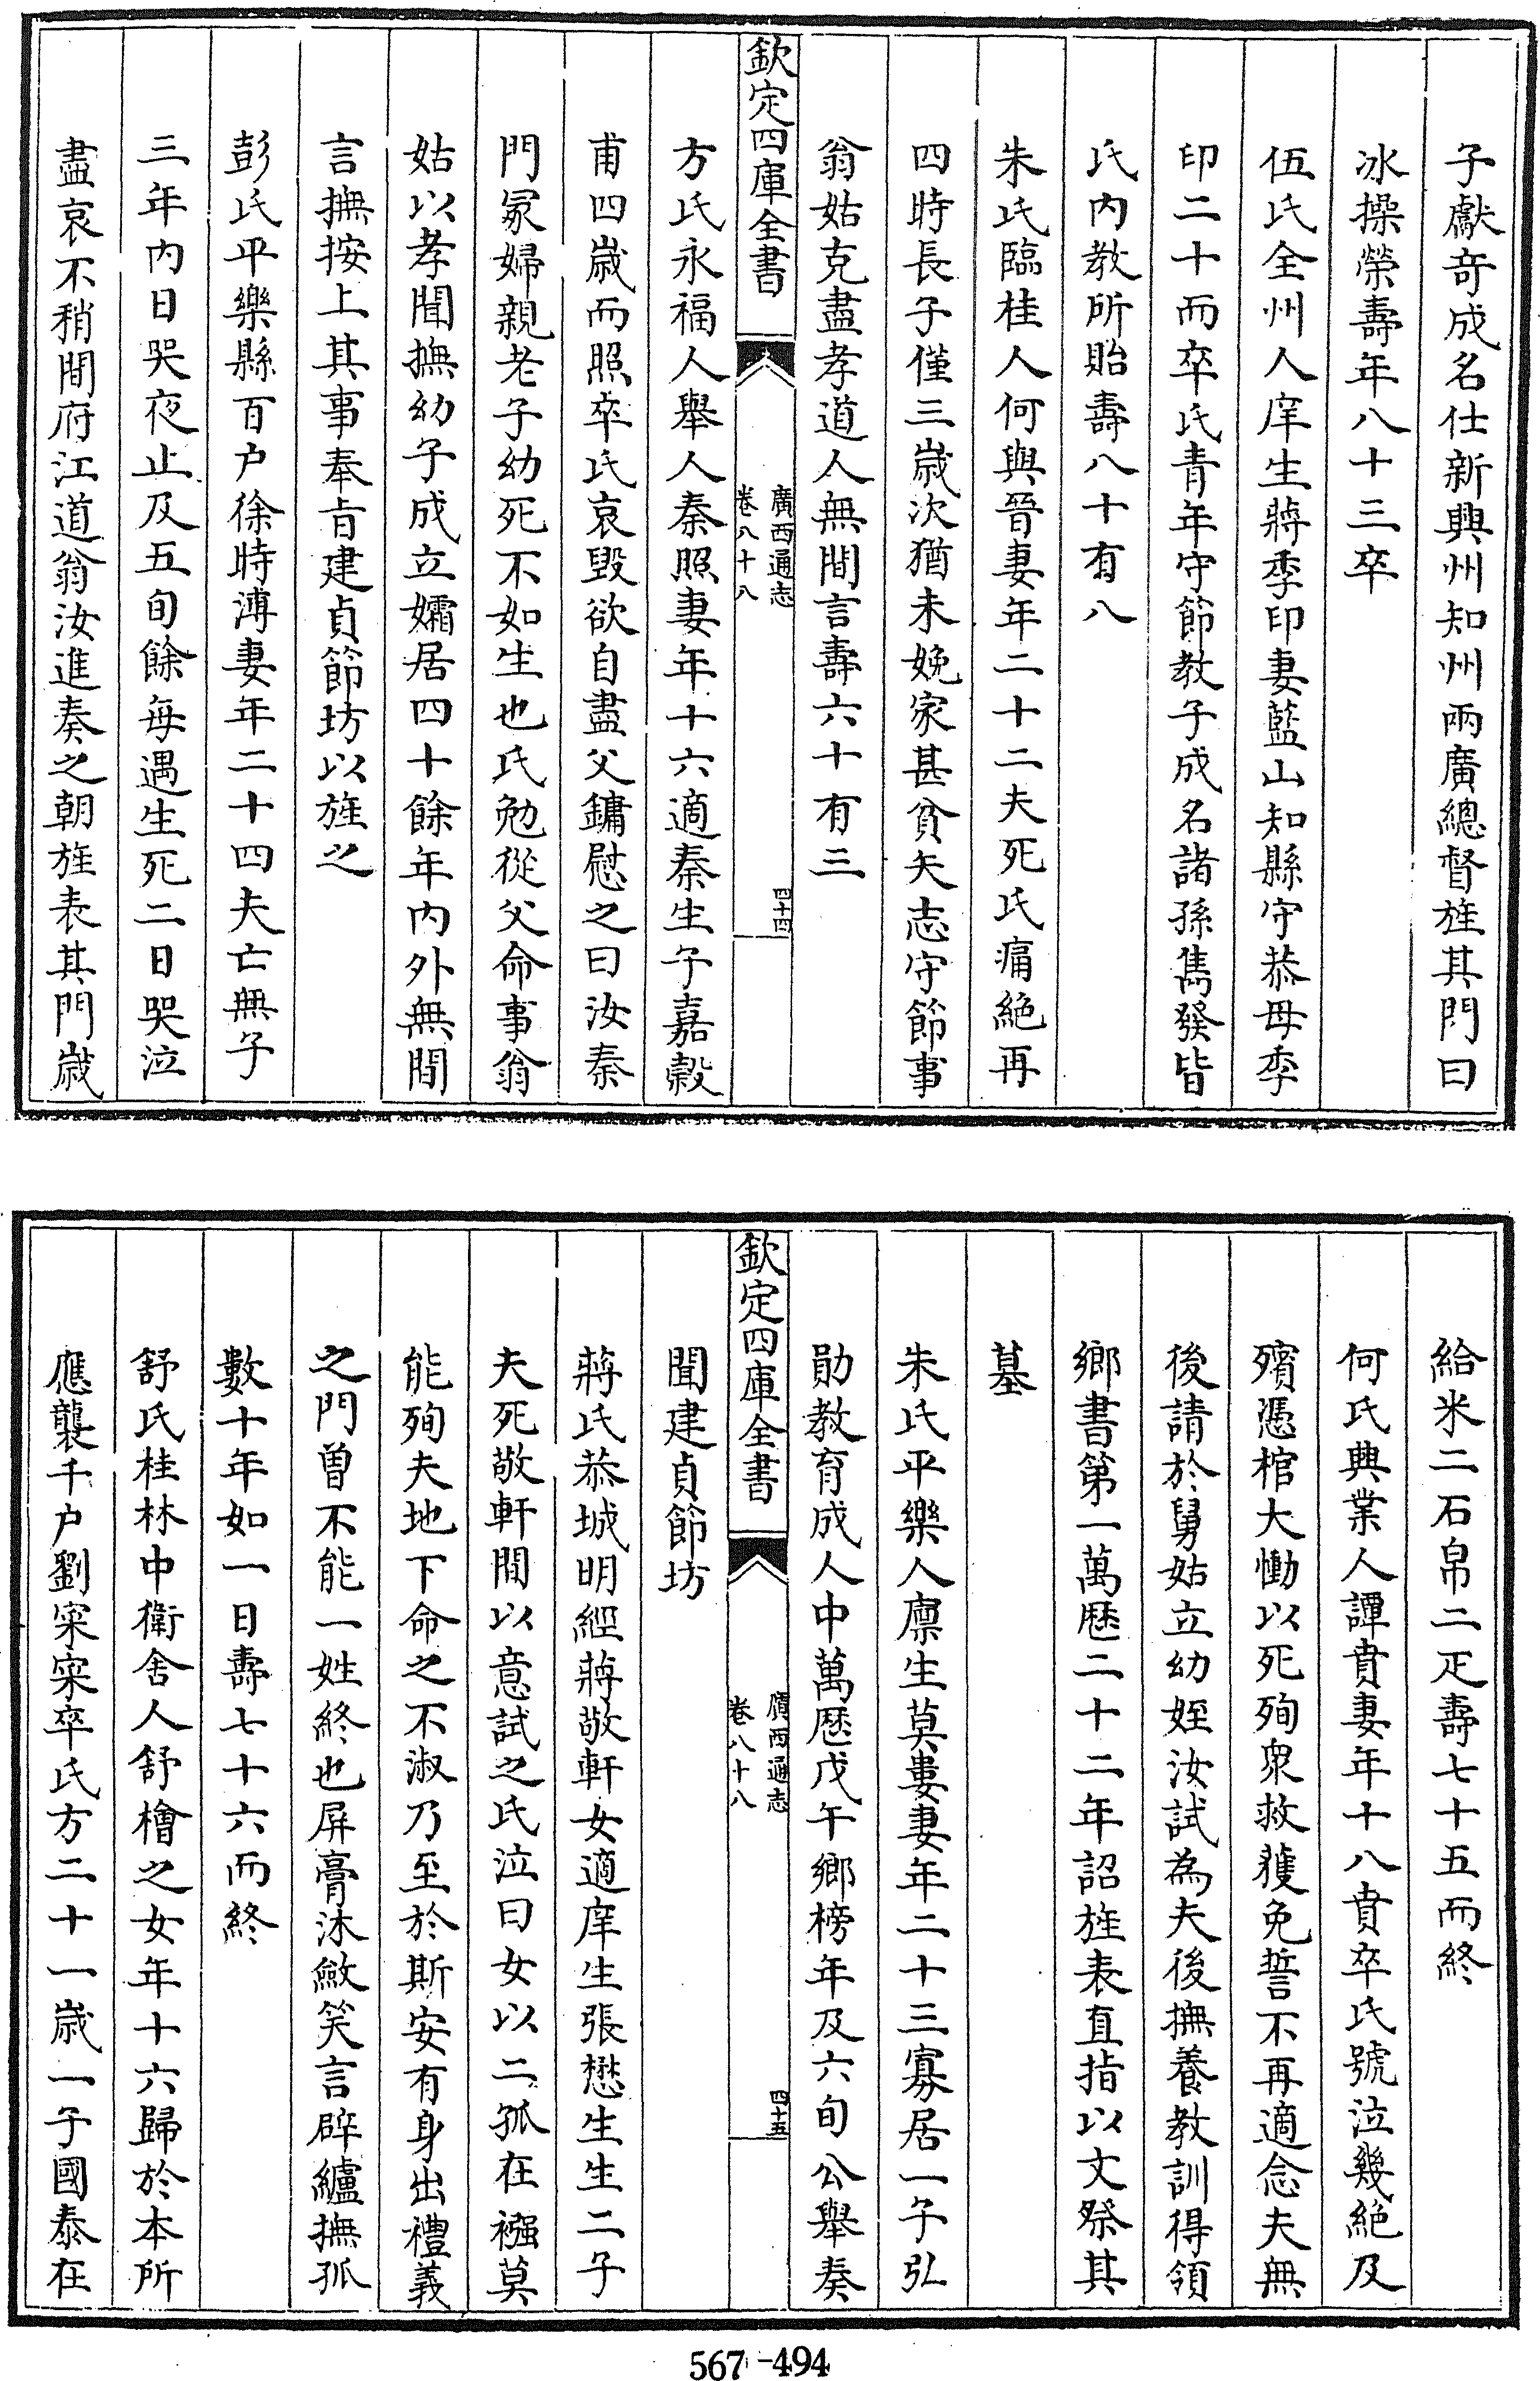 子獻奇成名仕新興州知州兩廣總督旌其門曰
冰操榮壽年八十三卒
伍氏全州人庠生蔣季印妻藍山知縣守恭母季
印二十而卒氏青年守節教子成名諸孫雋發皆
氏内教所貽壽八十有八
朱氏臨桂人何與晉妻年二十二夫死氏痛絶再
四時長子僅三歳次猶未娩家甚貧矢志守節事
翁姑克盡孝道人無間言壽六十有三
欽定四庫全書
廣西通志
卷八十八
四十四
方氏永福人舉人秦照妻年十六適秦生子嘉穀
甫四歳而照卒氏哀毀欲自盡父鏞慰之曰汝秦
門冢婦親老子幼死不如生也氏勉從父命事翁
姑以孝聞撫幼子成立孀居四十餘年内外無間
言撫按上其事奉旨建貞節坊以旌之
彭氏平樂縣百户徐時溥妻年二十四夫亡無子
三年内日哭夜止及五旬餘每遇生死二日哭泣
盡哀不稍間府江道翁汝進奏之朝旌表其門歳
給米二石帛二疋壽七十五而終
何氏興業人譚賁妻年十八賁卒氏號泣幾絶及
殯憑棺大慟以死殉衆救獲免誓不再適念夫無
後請於舅姑立幼姪汝試為夫後撫養教訓得領
鄉書第一萬歴二十二年詔旌表直指以文祭其
墓
朱氏平樂人廪生莫婁妻年二十三寡居一子弘
勛教育成人中萬歴戊午鄉榜年及六旬公舉奏
欽定四庫全書
廣西通志
卷八十八
四十五
聞建貞節坊
蔣氏恭城明經蔣敬軒女適庠生張懋生生二子
夫死敬軒間以意試之氏泣曰女以二孤在襁莫
能殉夫地下命之不淑乃至於斯安有身出禮義
之門曽不能一姓終也屏膏沐斂笑言辟纑撫孤
數十年如一日壽七十六而終
舒氏桂林中衛舍人舒檜之女年十六歸於本所
應襲千户劉宷宷卒氏方二十一歳一子國泰在
567-494